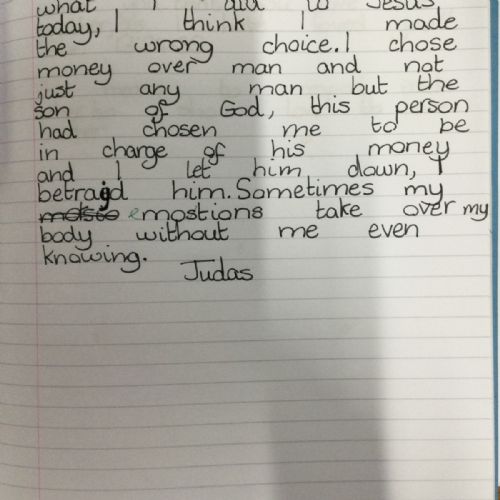 what I did to Jesus
today, I think I made
the wrong choice. I chose
money over man and not
just any man but the
son of God, this person
had chosen me to be
in charge of his money
and I let him down, I
betraid him. Sometimes my
emostions take over my
body without me even
knowing.
Judas